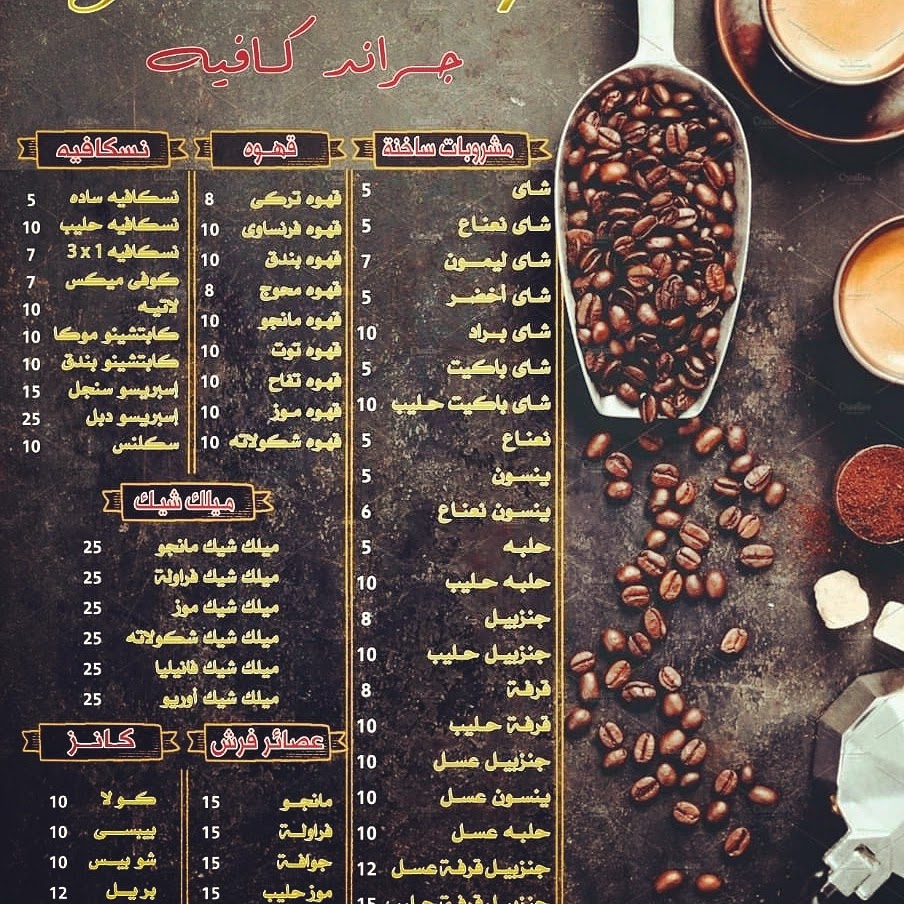 جراند كافيه
مشروبات ساخنة
شاى 5
شاى نعناع 5
شاى ليمون 7
شاى أخضر 5
شاى براد 10
شاى باكيت 5
شاى باكيت حليب 10
نعناع 5
ينسون 5
ينسون نعناع 6
حلبه 5
حلبه حليب 10
جنزبيل 8
جنزبيل حليب 10
قرفة 8
قرفة حليب 10
جنزبيل عسل 10
ينسون عسل 10
حلبه عسل 10
جنزبيل قرفة عسل 12
جنزبيل قرفة حليب 15
قهوه
قهوه تركى 8
قهوه فرنساوى 10
قهوه بندق 10
قهوه محوج 8
قهوه مانجو 10
قهوه توت 10
قهوه تفاح 10
قهوه موز 10
قهوه شكولاته 10
نسكافيه
نسكافيه ساده 5
نسكافيه حليب 10
نسكافيه 1 x 3 7
كوفى ميكس 7
لاتيه 10
كابتشينو موكا 10
كابتشينو بندق 10
إسبريسو سنجل 15
إسبريسو دبل 25
سكلنس 10
ميلك شيك
ميلك شيك مانجو 25
ميلك شيك فراولة 25
ميلك شيك موز 25
ميلك شيك شكولاته 25
ميلك شيك فانيليا 25
ميلك شيك أوريو 25
عصائر فرش
مانجو 15
فراولة 15
جوافة 15
موز حليب 15
كانز
كولا 10
بيبسى 10
شويبس 10
بريل 12